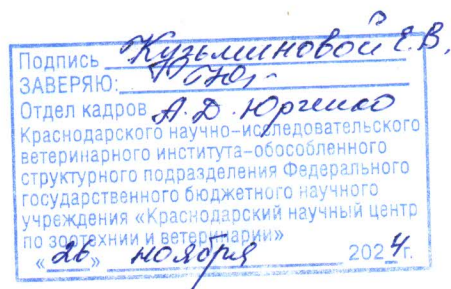 Подпись Кузьминовой Е.В.
ЗАВЕРЯЮ:
Отдел кадров А.Д. Юрченко
Краснодарского научно-исследовательского
ветеринарного института-обособленного
структурного подразделения Федерального
государственного бюджетного научного
учреждения «Краснодарский научный центр
по зоотехнии и ветеринарии»
«26» ноября 2024г.